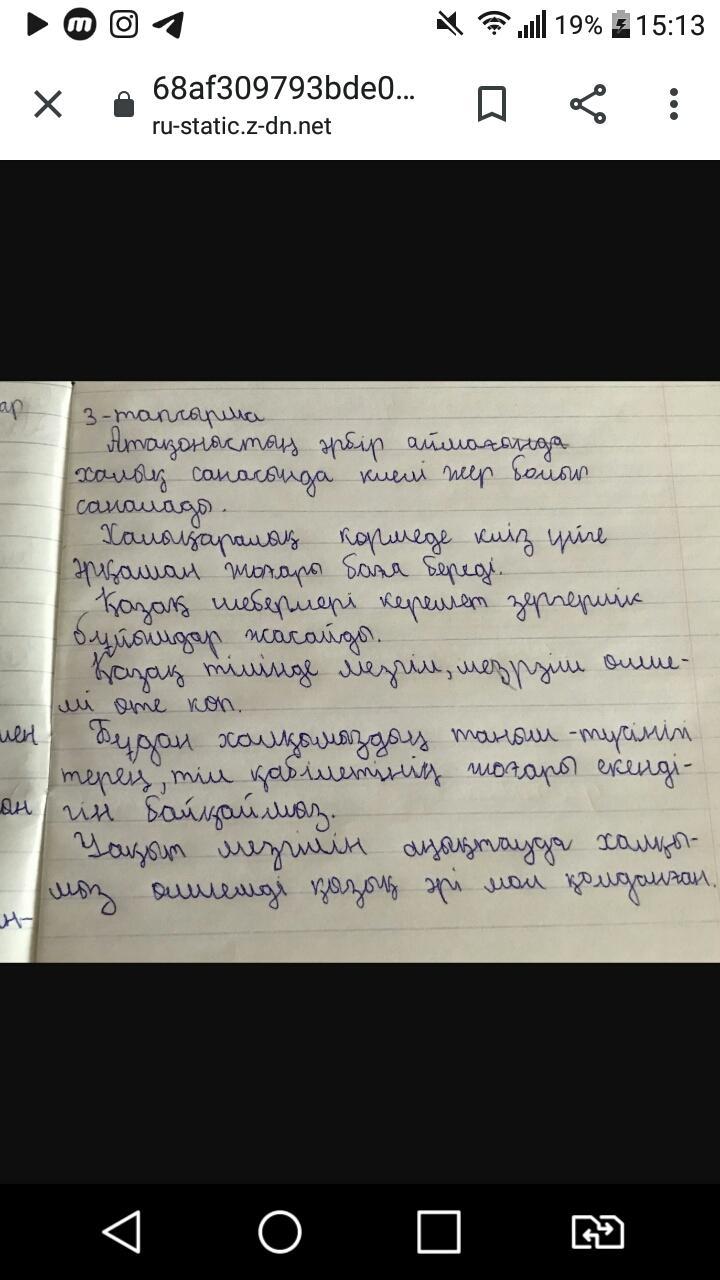 19% 15:13
68af309793bde0...
ru-static.z-dn.net
ар
3-тапсырма
Атақоныстың әрбір аймағында
халық санасында киелі жер болып
саналады.
Халықаралық көрмеде киіз үйге
әрқашан жоғары баға береді.
Қазақ шеберлері керемет зергерлік
бұйымдар жасайды.
Қазақ тілінде мезгіл, мезрзіл өлше-
мі өте көп.
мен
Бұдан халқымыздың таным-түсінігі
терең, тіл қабілетінің жоғары екенді-
ан
гін байқаймыз.
Уақыт мезгілін анықтауда халқы-
мыз өлшемді қазық әрі мол қолданған.
н-